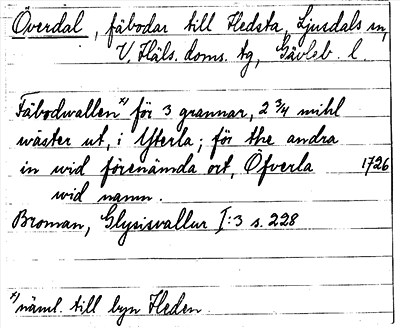 Överdal, fäbodar till Hedsta, Ljusdals sn,
V. Häls. doms. tg, Gävleb. l.
Fäbodwallen x) för 3 grannar, 2 3/4 mihl
wäster ut, i Ytterla; för the andra
in wid förenämda ort, Öfverla 1726
wid namn.
Broman, Glysisvallur I:3 s. 228
x) näml. till byn Heden